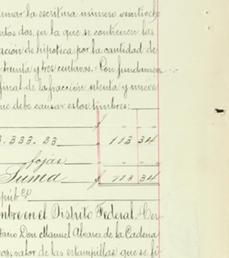 la escritura número veintioche
dos, en la que se contienen las
de hipoteca por la cantidad de
treinta y tres centavos. Con fundamen
final de la fracción setenta y nueve
debe causar estos timbres:
3.333.23 $ 113 34
fojas
Suma $ 113 34
en el Distrito Federal. Cer
Don Manuel Alvarez de la Cadena
valor de las estampillas que se fi